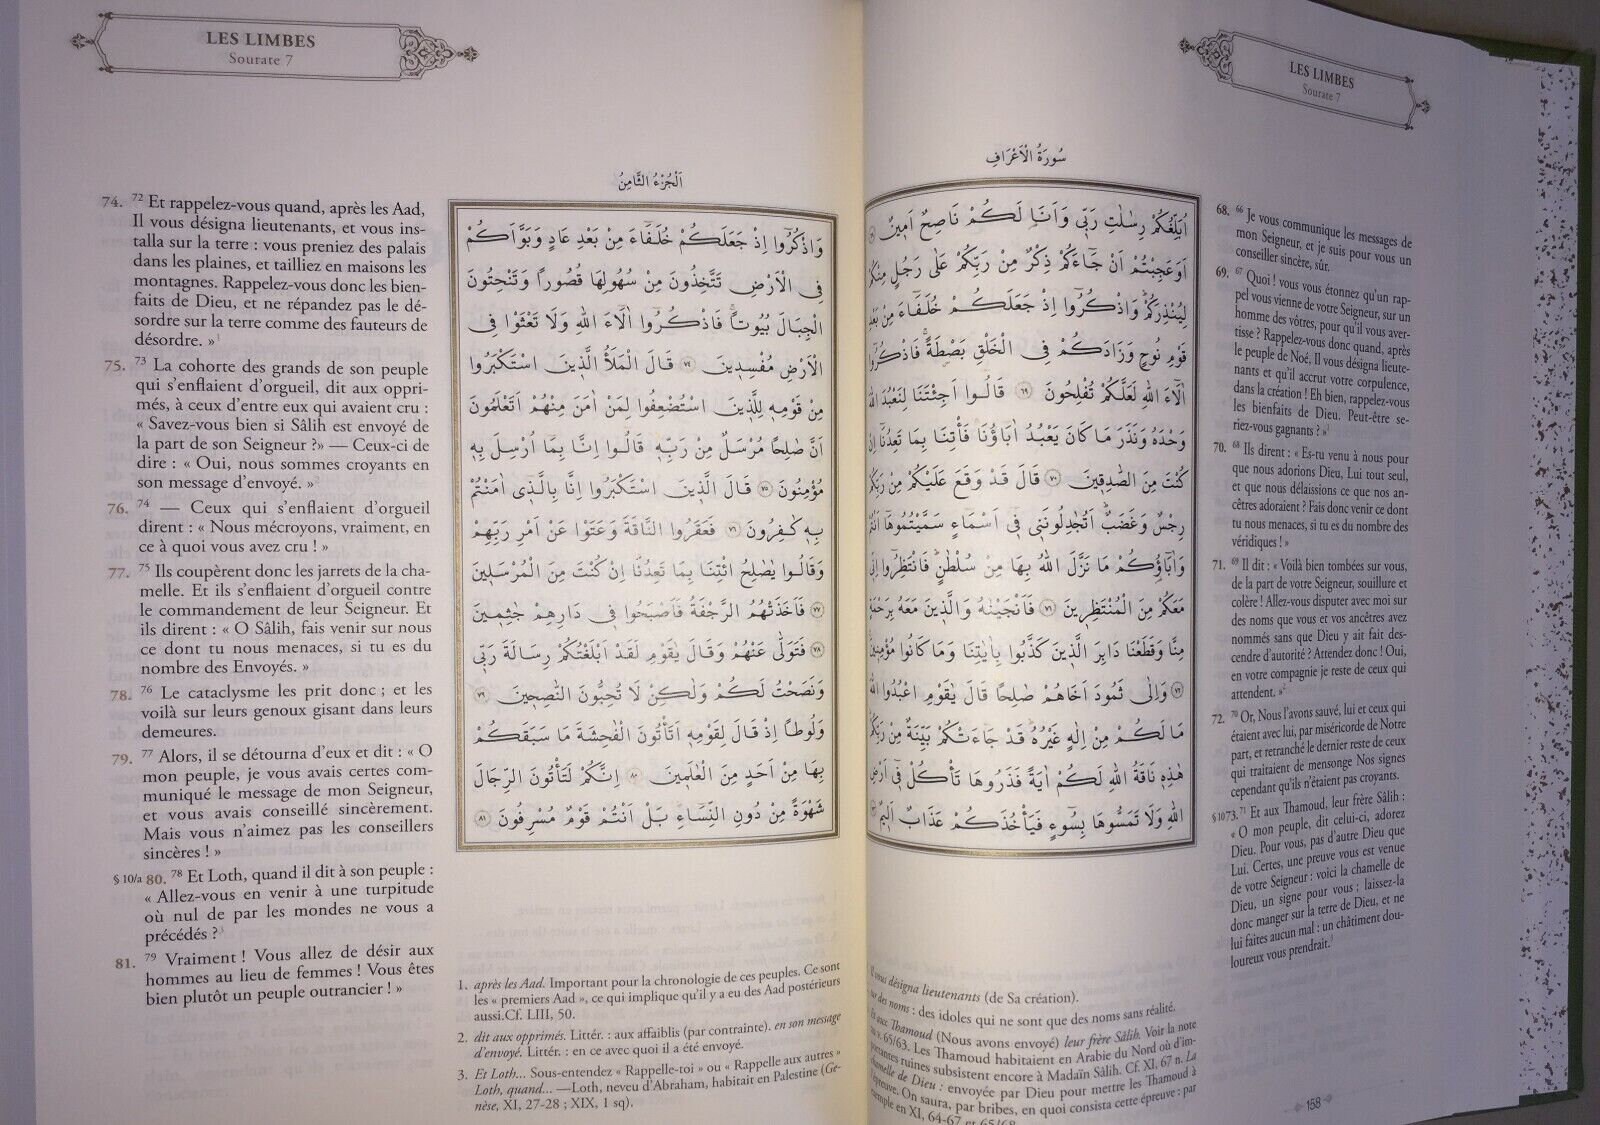 LES LIMBES
Sourate 7
سُورَةُ الْاَعْرَافِ
اُبَلِّغُكُمْ رِسَالَاتِ رَبّ۪ي وَاَنَا۬ لَكُمْ نَاصِحٌ اَم۪ينٌ
اَوَعَجِبْتُمْ اَنْ جَٓاءَكُمْ ذِكْرٌ مِنْ رَبِّكُمْ عَلٰى رَجُلٍ مِنْكُمْ
لِيُنْذِرَكُمْۜ وَاذْكُرُٓوا اِذْ جَعَلَكُمْ خُلَفَٓاءَ مِنْ بَعْدِ
قَوْمِ نُوحٍ وَزَادَكُمْ فِي الْخَلْقِ بَصْۣطَةًۚ فَاذْكُرُٓوا
اٰلَٓاءَ اللّٰهِ لَعَلَّكُمْ تُفْلِحُونَ ﴿٦٩﴾ قَالُٓوا اَجِئْتَنَا لِنَعْبُدَ اللّٰهَ
وَحْدَهُ وَنَذَرَ مَا كَانَ يَعْبُدُ اٰبَٓاؤُ۬نَاۚ فَأْتِنَا بِمَا تَعِدُنَٓا اِنْ
كُنْتَ مِنَ الصَّادِق۪ينَ ﴿٧٠﴾ قَالَ قَدْ وَقَعَ عَلَيْكُمْ مِنْ رَبِّكُمْ
رِجْسٌ وَغَضَبٌۜ اَتُجَادِلُونَن۪ي ف۪ٓي اَسْمَٓاءٍ سَمَّيْتُمُوهَٓا اَنْتُمْ
وَاٰبَٓاؤُ۬كُمْ مَا نَزَّلَ اللّٰهُ بِهَا مِنْ سُلْطَانٍۜ فَانْتَظِرُٓوا اِنّ۪ي
مَعَكُمْ مِنَ الْمُنْتَظِر۪ينَ ﴿٧١﴾ فَاَنْجَيْنَاهُ وَالَّذ۪ينَ مَعَهُ بِرَحْمَةٍ
مِنَّا وَقَطَعْنَا دَابِرَ الَّذ۪ينَ كَذَّبُوا بِاٰيَاتِنَا وَمَا كَانُوا مُؤْمِن۪ينَ
﴿٧٢﴾ وَاِلٰى ثَمُودَ اَخَاهُمْ صَالِحًاۢ قَالَ يَا قَوْمِ اعْبُدُوا اللّٰهَ
مَا لَكُمْ مِنْ اِلٰهٍ غَيْرُهُۜ قَدْ جَٓاءَتْكُمْ بَيِّنَةٌ مِنْ رَبِّكُمْۜ
هٰذِه۪ نَاقَةُ اللّٰهِ لَكُمْ اٰيَةً فَذَرُوهَا تَأْكُلْ ف۪ٓي اَرْضِ
اللّٰهِ وَلَا تَمَسُّوهَا بِسُٓوءٍ فَيَأْخُذَكُمْ عَذَابٌ اَل۪يمٌ
68. 66 Je vous communique les messages de
mon Seigneur, et je suis pour vous un
conseiller sincère, sûr.
69. 67 Quoi ! vous vous étonnez qu'un rap-
pel vous vienne de votre Seigneur, sur un
homme des vôtres, pour qu'il vous aver-
tisse ? Rappelez-vous donc quand, après
le peuple de Noé, Il vous désigna lieute-
nants et qu'il accrut votre corpulence,
dans la création ! Eh bien, rappelez-vous
les bienfaits de Dieu. Peut-être se-
riez-vous gagnants ? »1
70. 68 Ils dirent : « Es-tu venu à nous pour
que nous adorions Dieu, Lui tout seul,
et que nous délaissions ce que nos an-
cêtres adoraient ? Fais donc venir ce dont
tu nous menaces, si tu es du nombre des
véridiques ! »
71. 69 Il dit : « Voilà bien tombées sur vous,
de la part de votre Seigneur, souillure et
colère ! Allez-vous disputer avec moi sur
des noms que vous et vos ancêtres avez
nommés sans que Dieu y ait fait des-
cendre d'autorité ? Attendez donc ! Oui,
en votre compagnie je reste de ceux qui
attendent. »2
72. 70 Or, Nous l'avons sauvé, lui et ceux qui
étaient avec lui, par miséricorde de Notre
part, et retranché le dernier reste de ceux
qui traitaient de mensonge Nos signes
cependant qu'ils n'étaient pas croyants.
§ 10 73. 71 Et aux Thamoud, leur frère Sâlih :
« O mon peuple, dit celui-ci, adorez
Dieu. Pour vous, pas d'autre Dieu que
Lui. Certes, une preuve vous est venue
de votre Seigneur : voici la chamelle de
Dieu, un signe pour vous ; laissez-la
donc manger sur la terre de Dieu, et ne
lui faites aucun mal : un châtiment dou-
loureux vous prendrait.3
vous désigna lieutenants (de Sa création).
des noms : des idoles qui ne sont que des noms sans réalité.
Et aux Thamoud (Nous avons envoyé) leur frère Sâlih. Voir la note
65/63. Les Thamoud habitaient en Arabie du Nord où d'im-
portantes ruines subsistent encore à Madaïn Sâlih. Cf. XI, 67 n. La
chamelle de Dieu : envoyée par Dieu pour mettre les Thamoud à
l'épreuve. On saura, par bribes, en quoi consista cette épreuve : par
exemple en XI, 64-67 et 65/68.
158
LES LIMBES
Sourate 7
اَلْجُزْءُ الثَّامِنُ
وَاذْكُرُٓوا اِذْ جَعَلَكُمْ خُلَفَٓاءَ مِنْ بَعْدِ عَادٍ وَبَوَّاَكُمْ
فِي الْاَرْضِ تَتَّخِذُونَ مِنْ سُهُولِهَا قُصُورًا وَتَنْحِتُونَ
الْجِبَالَ بُيُوتًاۚ فَاذْكُرُٓوا اٰلَٓاءَ اللّٰهِ وَلَا تَعْثَوْا فِي
الْاَرْضِ مُفْسِد۪ينَ ﴿٧٤﴾ قَالَ الْمَلَاُ الَّذ۪ينَ اسْتَكْبَرُوا
مِنْ قَوْمِه۪ لِلَّذ۪ينَ اسْتُضْعِفُوا لِمَنْ اٰمَنَ مِنْهُمْ اَتَعْلَمُونَ
اَنَّ صَالِحًا مُرْسَلٌ مِنْ رَبِّه۪ۜ قَالُٓوا اِنَّا بِمَٓا اُرْسِلَ بِه۪
مُؤْمِنُونَ ﴿٧٥﴾ قَالَ الَّذ۪ينَ اسْتَكْبَرُٓوا اِنَّا بِالَّذ۪ٓي اٰمَنْتُمْ
بِه۪ كَافِرُونَ ﴿٧٦﴾ فَعَقَرُوا النَّاقَةَ وَعَتَوْا عَنْ اَمْرِ رَبِّهِمْ
وَقَالُوا يَا صَالِحُ ائْتِنَا بِمَا تَعِدُنَٓا اِنْ كُنْتَ مِنَ الْمُرْسَل۪ينَ
﴿٧٧﴾ فَاَخَذَتْهُمُ الرَّجْفَةُ فَاَصْبَحُوا ف۪ي دَارِهِمْ جَاثِم۪ينَ
﴿٧٨﴾ فَتَوَلّٰى عَنْهُمْ وَقَالَ يَا قَوْمِ لَقَدْ اَبْلَغْتُكُمْ رِسَالَةَ رَبّ۪ي
وَنَصَحْتُ لَكُمْ وَلٰكِنْ لَا تُحِبُّونَ النَّاصِح۪ينَ ﴿٧٩﴾
وَلُوطًا اِذْ قَالَ لِقَوْمِه۪ٓ اَتَأْتُونَ الْفَاحِشَةَ مَا سَبَقَكُمْ
بِهَا مِنْ اَحَدٍ مِنَ الْعَالَم۪ينَ ﴿٨٠﴾ اِنَّكُمْ لَتَأْتُونَ الرِّجَالَ
شَهْوَةً مِنْ دُونِ النِّسَٓاءِۜ بَلْ اَنْتُمْ قَوْمٌ مُسْرِفُونَ ﴿٨١﴾
74. 72 Et rappelez-vous quand, après les Aad,
Il vous désigna lieutenants, et vous ins-
talla sur la terre : vous preniez des palais
dans les plaines, et tailliez en maisons les
montagnes. Rappelez-vous donc les bien-
faits de Dieu, et ne répandez pas le dé-
sordre sur la terre comme des fauteurs de
désordre. »1
75. 73 La cohorte des grands de son peuple
qui s'enflaient d'orgueil, dit aux oppri-
més, à ceux d'entre eux qui avaient cru :
« Savez-vous bien si Sâlih est envoyé de
la part de son Seigneur ?» — Ceux-ci de
dire : « Oui, nous sommes croyants en
son message d'envoyé. »
76. 74 — Ceux qui s'enflaient d'orgueil
dirent : « Nous mécroyons, vraiment, en
ce à quoi vous avez cru ! »
77. 75 Ils coupèrent donc les jarrets de la cha-
melle. Et ils s'enflaient d'orgueil contre
le commandement de leur Seigneur. Et
ils dirent : « O Sâlih, fais venir sur nous
ce dont tu nous menaces, si tu es du
nombre des Envoyés. »
78. 76 Le cataclysme les prit donc ; et les
voilà sur leurs genoux gisant dans leurs
demeures.
79. 77 Alors, il se détourna d'eux et dit : « O
mon peuple, je vous avais certes com-
muniqué le message de mon Seigneur,
et vous avais conseillé sincèrement.
Mais vous n'aimez pas les conseillers
sincères ! »
§ 10/a 80. 78 Et Loth, quand il dit à son peuple :
« Allez-vous en venir à une turpitude
où nul de par les mondes ne vous a
précédés ?3
81. 79 Vraiment ! Vous allez de désir aux
hommes au lieu de femmes ! Vous êtes
bien plutôt un peuple outrancier ! »
1. après les Aad. Important pour la chronologie de ces peuples. Ce sont
les « premiers Aad », ce qui implique qu'il y a eu des Aad postérieurs
aussi.Cf. LIII, 50.
2. dit aux opprimés. Littér. : aux affaiblis (par contrainte). en son message
d'envoyé. Littér. : en ce avec quoi il a été envoyé.
3. Et Loth... Sous-entendez « Rappelle-toi » ou « Rappelle aux autres »
Loth, quand... —Loth, neveu d'Abraham, habitait en Palestine (Ge-
nèse, XI, 27-28 ; XIX, 1 sq).